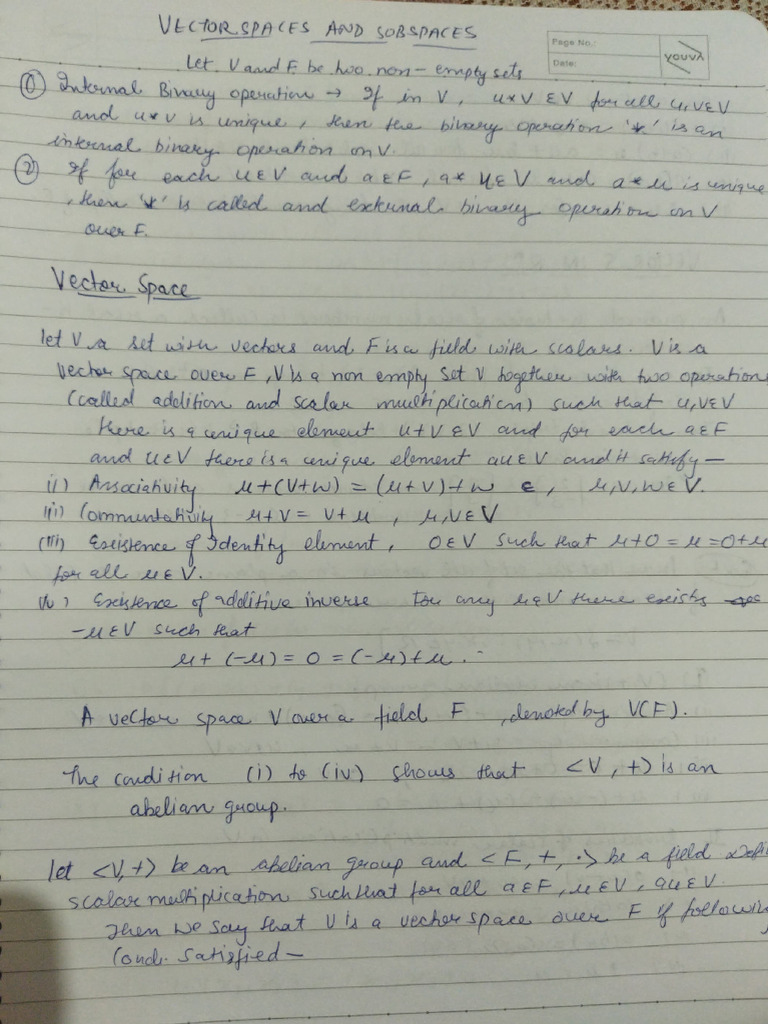 VECTOR SPACES AND SOBSPACES
Page No.:
Date:
YOUVA
Let V and F be two non-empty sets
① Internal Binary operation → If in V, u*v ∈V for all u,v∈V
and u*v is unique, then the binary operation '*' is an
internal binary operation on V.
② If for each u∈V and a∈F, a*u∈V and a*u is unique
, then '*' is called and external binary operation on V
over F.
Vector Space
let V a set with vectors and F is a field with scalars. V is a
vector space over F, V is a non empty set V together with two operation
(called addition and scalar multiplication) such that u,v∈V
there is a unique element u+v ∈V and for each a∈F
and u∈V there is a unique element au∈V and it satisfy —
(i) Associativity u+(v+w) = (u+v)+w , u,v,w∈V.
(ii) Commutativity u+v = v+u , u,v∈V
(iii) Existence of Identity element, 0∈V such that u+0=u=0+u
for all u∈V.
(iv) Existence of additive inverse For any u∈V there exists
-u∈V such that
u+(-u)=0=(-u)+u.
A vector space V over a field F , denoted by V(F).
The condition (i) to (iv) shows that <V,+> is an
abelian group.
let <V,+> be an abelian group and <F,+,·> be a field Defi
scalar multiplication such that for all a∈F, u∈V, au∈V.
Then we say that V is a vector space over F if followin
Cond. satisfied —